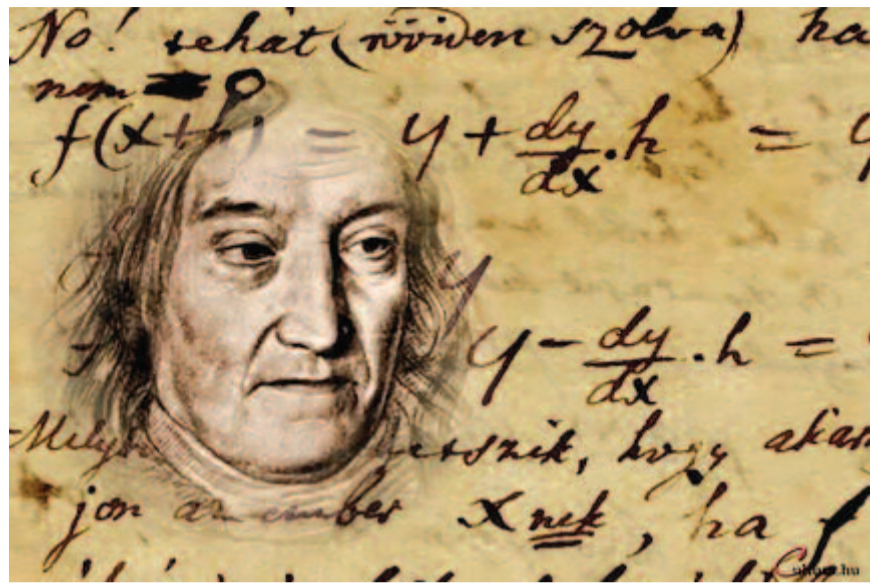 No! tehát (röviden szolva) ha
nem = 0
f(x+h) = y + dy/dx . h =
y
y - dy/dx . h =
Mely tetszik, hogy akar
jon az ember xnek, ha